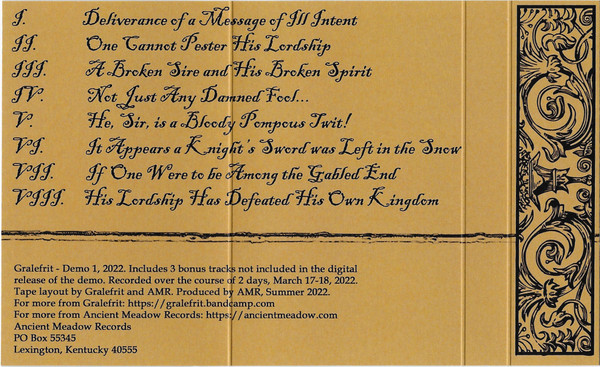 I. Deliverance of a Message of Ill Intent
II. One Cannot Pester His Lordship
III. A Broken Sire and His Broken Spirit
IV. Not Just Any Damned Fool...
V. He, Sir, is a Bloody Pompous Twit!
VI. It Appears a Knight's Sword was Left in the Snow
VII. If One Were to be Among the Gabled End
VIII. His Lordship Has Defeated His Own Kingdom
Gralefrit - Demo 1, 2022. Includes 3 bonus tracks not included in the digital
release of the demo. Recorded over the course of 2 days, March 17-18, 2022.
Tape layout by Gralefrit and AMR. Produced by AMR, Summer 2022.
For more from Gralefrit: https://gralefrit.bandcamp.com
For more from Ancient Meadow Records: https://ancientmeadow.com
Ancient Meadow Records
PO Box 55345
Lexington, Kentucky 40555